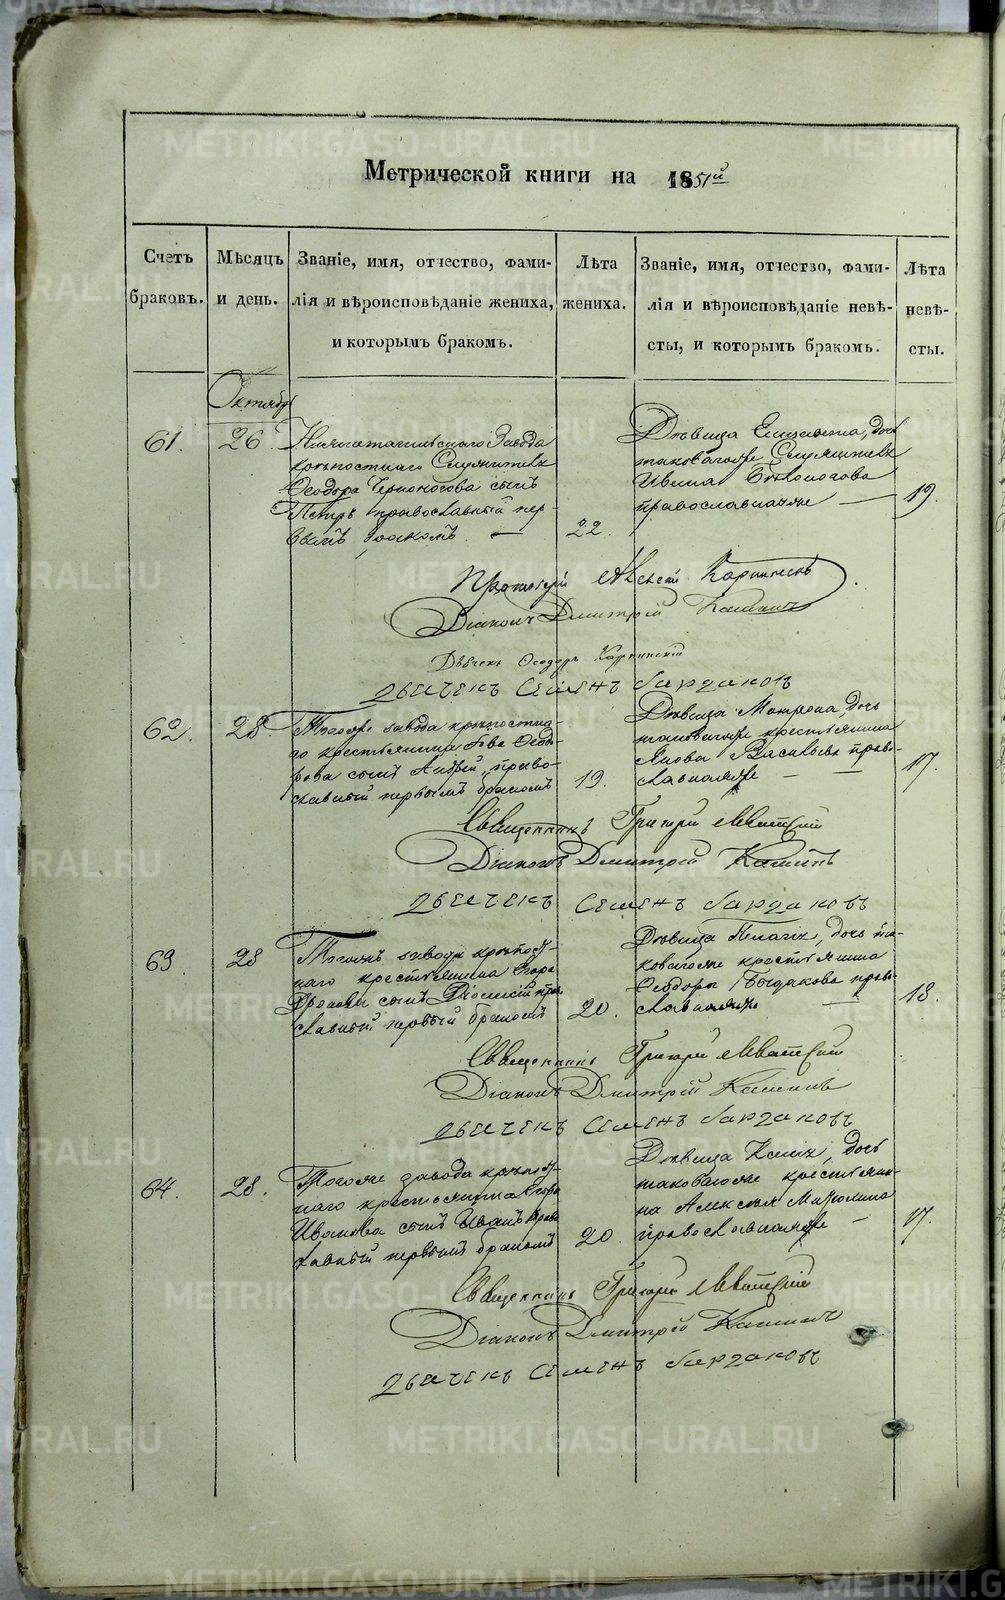 Метрической книги на 1851й
Счетъ браковъ.
Мѣсяцъ и день.
Званіе, имя, отчество, фами-
лія и вѣроисповѣданіе жениха,
и которымъ бракомъ.
Лѣта жениха.
Званіе, имя, отчество, фами-
лія и вѣроисповѣданіе невѣ-
сты, и которымъ бракомъ.
Лѣта невѣ-
сты.
Октябрь
61. 26
Нижнетагильскаго Завода
крѣпостнаго Служителя
Ѳеодора Черноногова сынъ
Петръ православный пер-
вымъ бракомъ. —
22.
Дѣвица Елисавета, дочь
таковагоже Служителя
Ивана Бѣлоногова
православнаяже —
19.
Протоіерей Алексій Карпинскій
Діаконъ Дмитрій Кашинъ
Дьячекъ Ѳеодоръ Карпинскій
дьячекъ Семенъ бардаковъ
62. 28
Тогоже завода крѣпостна-
го крестьянина
сынъ Андрей, право-
славный первымъ бракомъ
19.
Дѣвица Матрона, дочь
таковагоже крестьянина
Якова Васильева право-
славнаяже — —
17.
Священникъ Григорій
Діаконъ Дмитрій Кашинъ
дьячекъ Семенъ бардаковъ
63. 28
Тогоже завода крѣпост-
наго крестьянина Егора
сынъ пра-
славный первый бракомъ
20.
Дѣвица Пелагія, дочь та-
ковагоже крестьянина
Ѳеодора прав-
славнаяже —
18.
Священникъ Григорій
Діаконъ Дмитрій Кашинъ
дьячекъ Семенъ бардаковъ
64. 28.
Тогоже завода крѣпост-
наго крестьянина Егора
Иванова сынъ Иванъ право-
славный первымъ бракомъ
20.
Дѣвица дочь
таковагоже крестьяни-
на Алексѣя
православнаяже —
17.
Священникъ Григорій
Діаконъ Дмитрій Кашинъ
дьячекъ Семенъ бардаковъ
METRIKI.GASO-URAL.RU